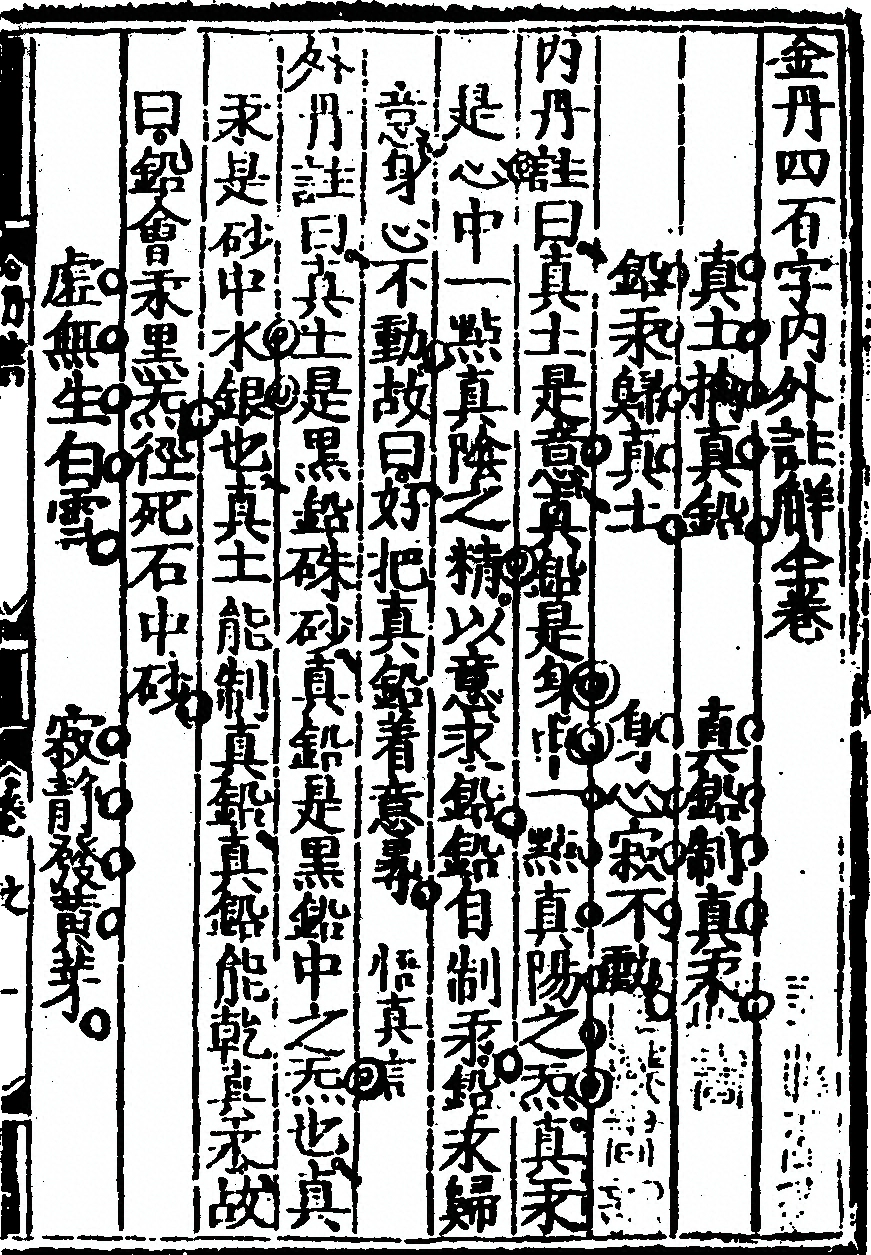 金丹四百字内外註解全卷
真土擒真鉛　真鉛制真汞
鉛汞歸真土　身心寂不動
内丹註曰真土是意真鉛是身中一點真陽之炁真汞
是心中一點真陰之精以意汞鉛鉛自制汞鉛汞歸
意身心不動故曰好把真鉛着意尋　悟真
外丹註曰真土是黑鉛硃砂真鉛是黑鉛中之炁也真
汞是砂中水銀也真土能制真鉛真鉛能乾真汞故
曰鉛會汞黑炁徑死石中砂
虛無生白雪　寂靜發黃芽